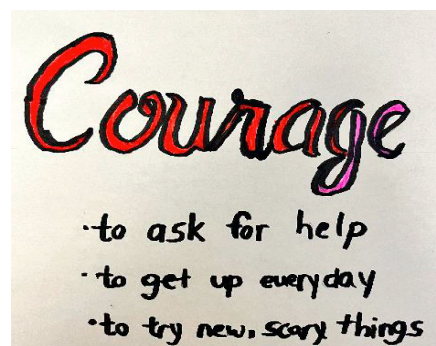 Courage
·to ask for help
·to get up everyday
·to try new, scary things